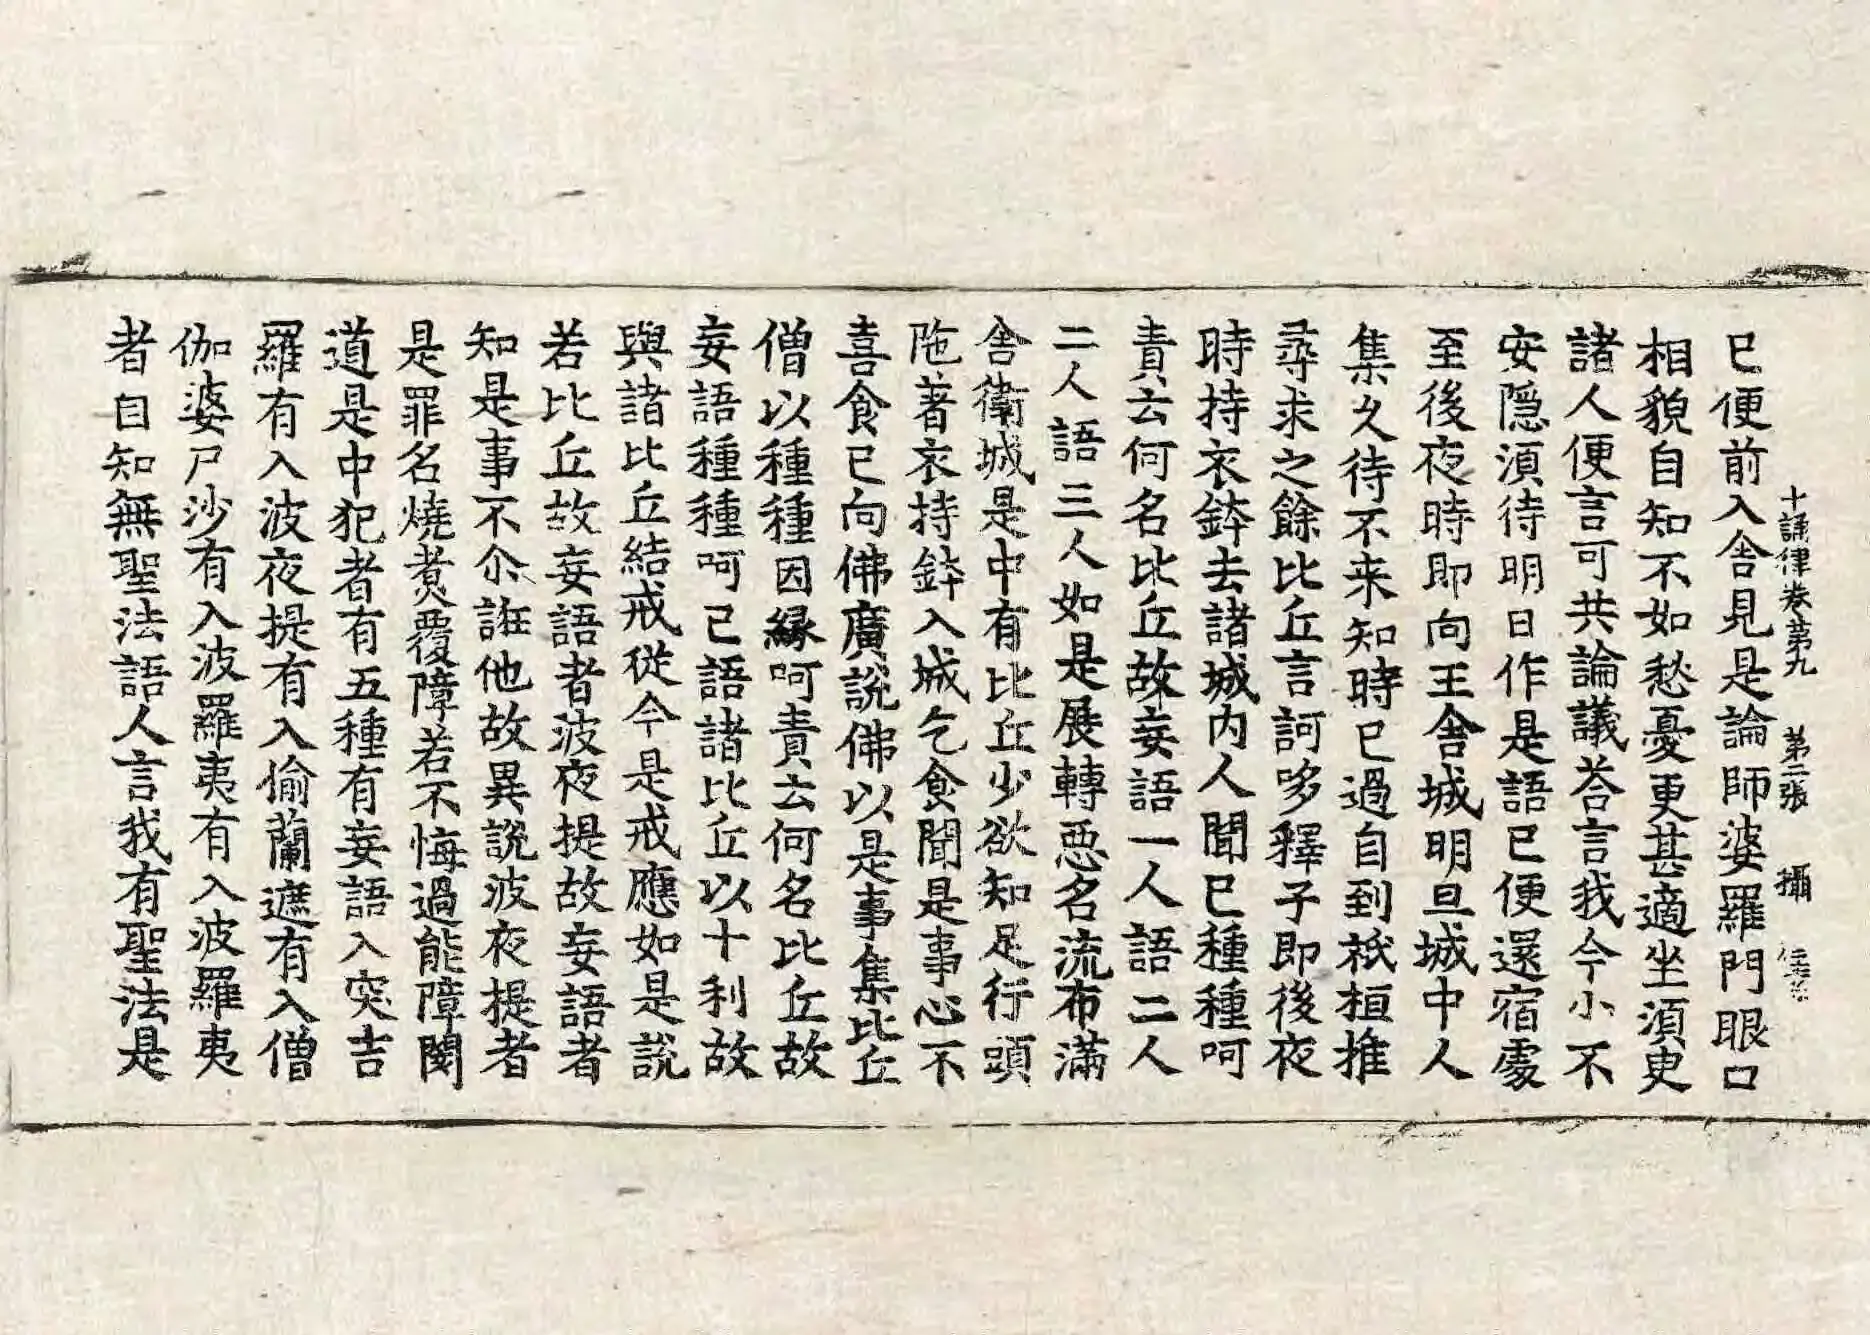 十誦律卷第九 第二張 攝
已便前入舍見是論師婆羅門眼口
相貌自知不如愁憂更甚適坐湏臾
諸人便言可共論議荅言我今小不
安隠湏待明日作是語已便還宿處
至後夜時即向王舍城明旦城中人
集久待不来知時已過自到祇桓推
尋求之餘比丘言訶哆釋子即後夜
時持衣鉢去諸城内人聞已種種呵
責云何名比丘故妄語一人語二人
二人語三人如是展轉惡名流布滿
舍衛城是中有比丘少欲知足行頭
陁著衣持鉢入城乞食聞是事心不
喜食已向佛廣說佛以是事集比丘
僧以種種因緣呵責云何名比丘故
妄語種種呵已語諸比丘以十利故
與諸比丘結戒從今是戒應如是說
若比丘故妄語者波夜提故妄語者
知是事不尒誑他故異說波夜提者
是罪名燒煑覆障若不悔過能障閡
道是中犯者有五種有妄語入突吉
羅有入波夜提有入偷蘭遮有入僧
伽婆尸沙有入波羅夷有入波羅夷
者自知無聖法語人言我有聖法是